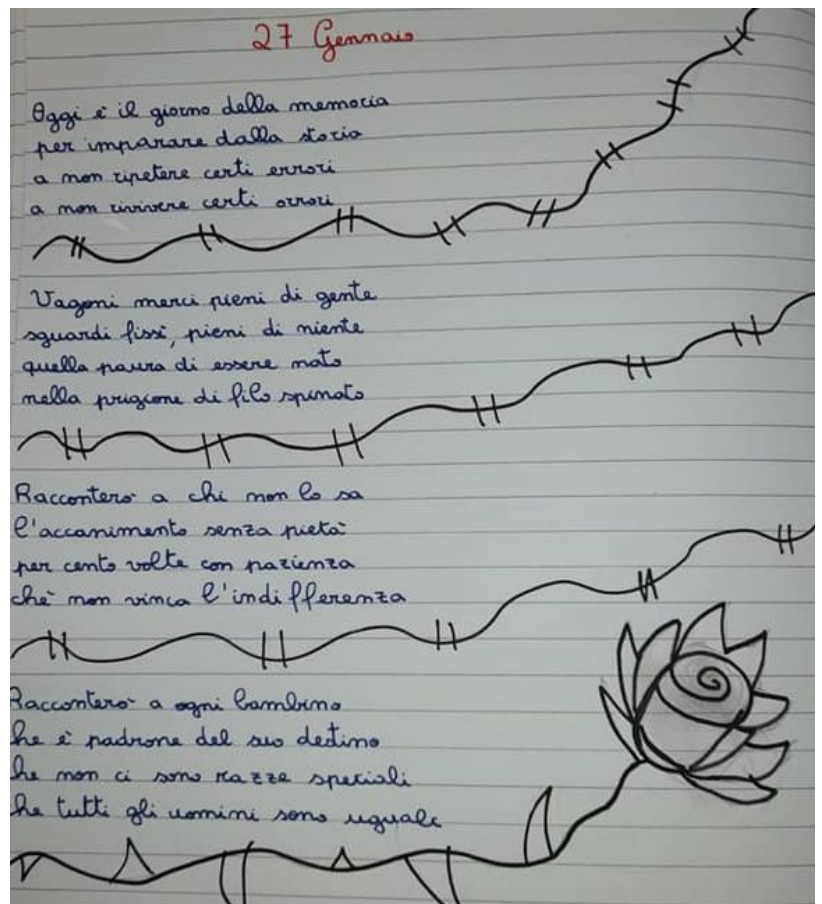 27 Gennaio
Oggi è il giorno della memoria
per imparare dalla storia
a non ripetere certi errori
a non rivivere certi orrori
Vagoni merci pieni di gente
sguardi fissi, pieni di niente
quella paura di essere nato
nella prigione di filo spinato
Racconterò a chi non lo sa
l'accanimento senza pietà
per cento volte con pazienza
chè non vinca l'indifferenza
Racconterò a ogni bambino
he è padrone del suo destino
he non ci sono razze speciali
he tutti gli uomini sono uguale